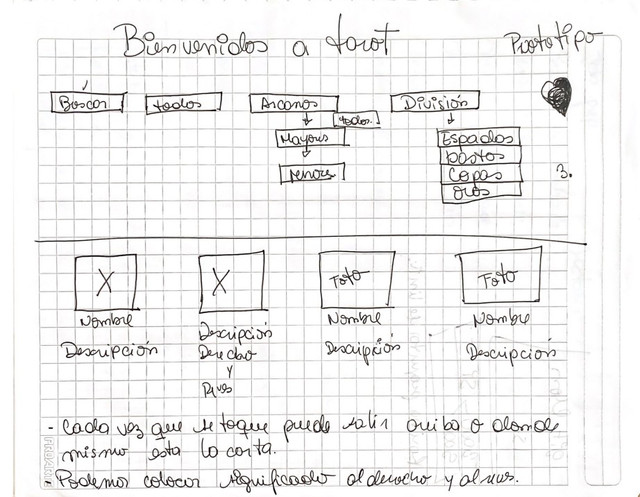 Bienvenidos a tarot
Prototipo
Buscar
todos
Arcanos
División
todos.
Mayores
menores
Espadas
bastos
Copas
oros
3.
X
X
Foto
Foto
Nombre
Descripción
Descripción
Derecho
y
Nombre
Descripción
Nombre
Descripción
- Cada vez que se toque puede salir arriba o donde
mismo esta la carta.
- Podemos colocar significado al derecho y al reves.